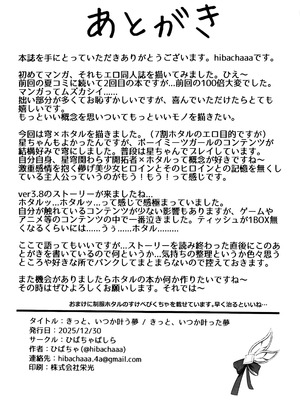 あとがき
本誌を手にとっていただきありがとうございます。hibachaaaです。
初めてマンガ、それもエロ同人誌を描いてみました。ひえ～
前回の夏コミに続いて2回目の本ですが…前回の100倍大変でした。
マンガってムズカシイ…
拙い部分が多くてお恥ずかしいですが、喜んでいただけたらとても
嬉しいです。
もっといい概念を思いついてもっといいモノを描きたい。
今回は穹×ホタルを描きました。(7割ホタルのエロ目的ですが)
星ちゃんもよかったんですが、ボーイミーツガールのコンテンツが
結構好みで穹にしました。普段は星ちゃんでプレイしています。
自分自身、星穹関わらず開拓者×ホタルって概念が好きですね～
激重感情を抱く儚げ美少女ヒロインとそのヒロインとの記憶を無く
している主人公っていうのがもう!もう!って感じです。
ver3.8のストーリーが来ましたね…
ホタルッ…ホタルッ…って感じで感極まっていました。
自分が触れているコンテンツが少ない影響もありますが、ゲームや
アニメ等のコンテンツの中で一番泣きました。ティッシュが1BOX無
くなるくらいには……うぅ……ホタル………
ここで語ってもいいですが…ストーリーを読み終わった直後にこのあ
とがきを書いているので何というか…気持ちの整理というか色々思う
ところや好きな所でパンクしてまとまらないのでやめておきます。
また機会がありましたらホタルの本か何か作りたいですね～
その時はぜひよろしくお願いします。それでは～
おまけに制服ホタルのすけべぴくちゃを載せています。早く治るといいね…
タイトル：きっと、いつか叶う夢 / きっと、いつか叶った夢
発行日：2025/12/30
サークル：ひばちゃばしら
作者：ひばちゃ(@hibachaaa)
連絡先：hibachaaa.4a@gmail.com
印刷：株式会社栄光